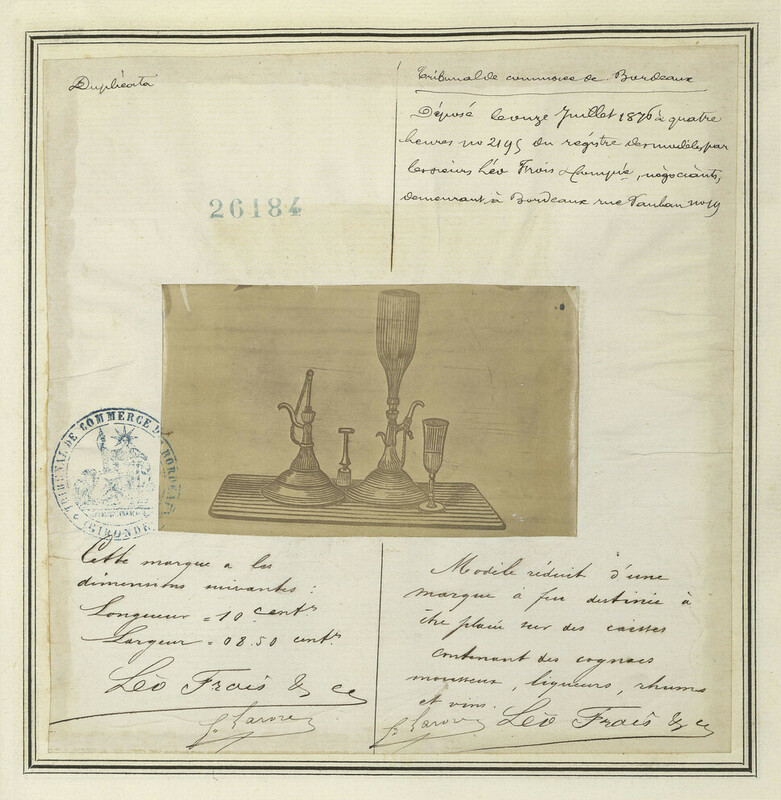 Duplicata
Tribunal de commerce de Bordeaux
Déposé le onze Juillet 1876 à quatre
heures no 2195 du régistre des modèles, par
les sieurs Léo Frois & Compie, négociants,
demeurant à Bordeaux rue Vauban no 19
26184
TRIBUNAL DE COMMERCE D BORDEAUX
(GIRONDE)
Cette marque a les
dimensions suivantes :
Longueur = 10 cents
Largeur = 08.50 cents.
Léo Frois & Ce
Modèle réduit d'une
marque à feu destinée à
être placée sur des caisses
contenant des cognacs
mousseux, liqueurs, rhums
et vins.
Léo Frois & Ce